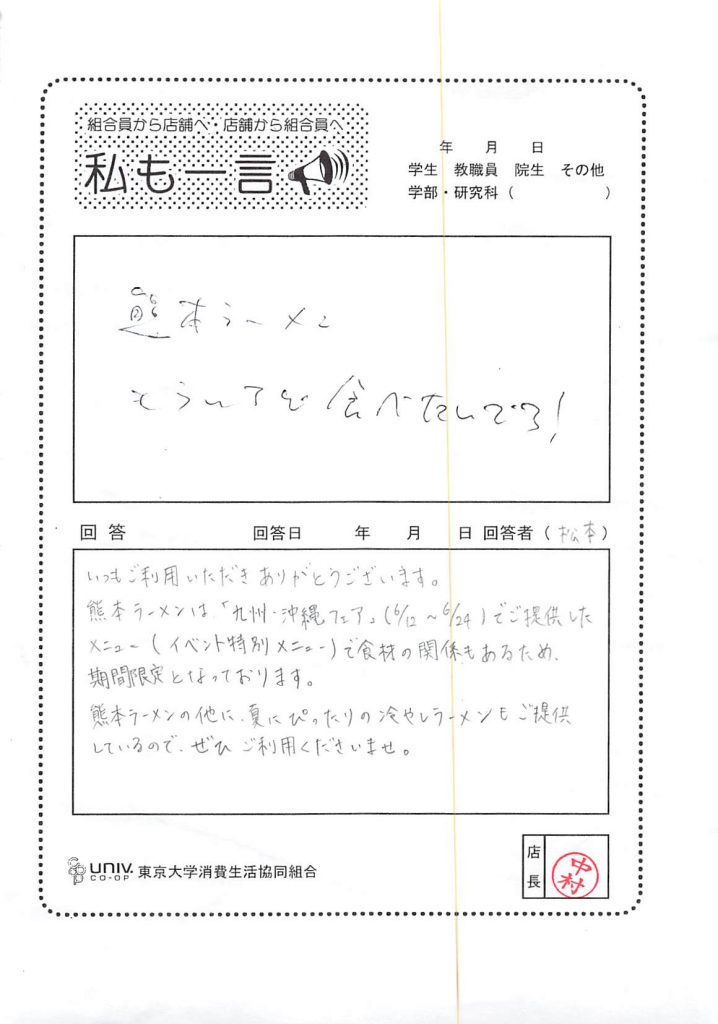 組合員から店舗へ・店舗から組合員へ
私も一言
年 月 日
学生 教職員 院生 その他
学部・研究科 ( )
熊本ラーメン
食べたいです!
回答 回答日 年 月 日 回答者 ( 松本 )
いつもご利用いただきありがとうございます。
熊本ラーメンは、「九州・沖縄フェア」(6/12 ~ 6/24) でご提供した
メニュー ( イベント特別メニュー ) で食材の関係もあるため、
期間限定となっております。
熊本ラーメンの他に、夏にぴったりの冷やしラーメンもご提供
しているので、ぜひ ご利用くださいませ。
UNIV. CO-OP 東京大学消費生活協同組合
店長 中村